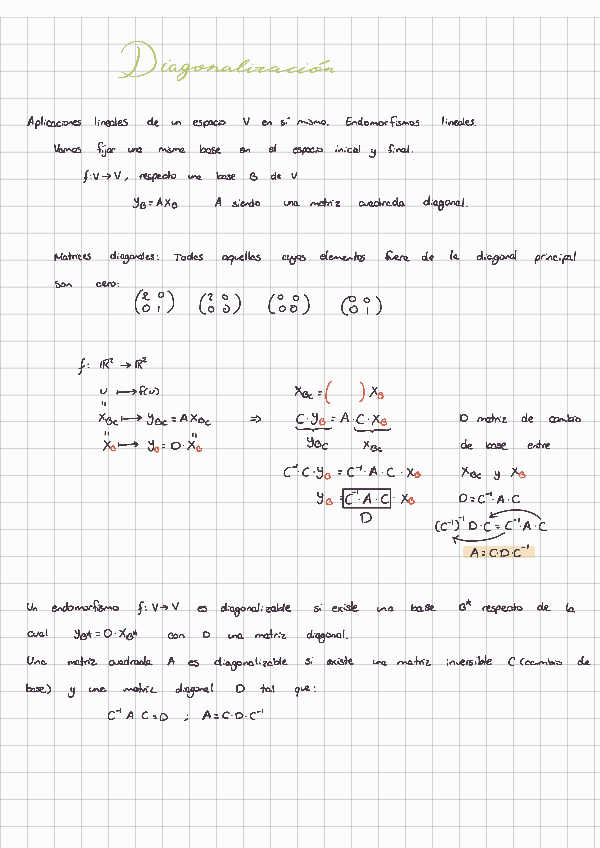 Diagonalización
Aplicaciones lineales de un espacio V en sí mismo. Endomorfismos lineales.
Vamos fijar una misma base en el espacio inicial y final.
f: V → V, respecto una base B de V
y_B = A X_B A siendo una matriz cuadrada diagonal.
Matrices diagonales: Todas aquellas cuyos elementos fuera de la diagonal principal
son cero:
(2 0 / 0 1) (2 0 / 0 0) (0 0 / 0 0) (0 0 / 0 1)
f: ℝ² → ℝ²
u ⟼ f(u) X_Bc = ( ) X_B
"
X_Bc ⟼ y_Bc = A X_Bc ⇒ C · y_B = A · C · X_B D matriz de cambio
" "
X_B ⟼ y_B = D · X_B y_Bc X_Bc de base entre
C⁻¹ · C · y_B = C⁻¹ · A · C · X_B X_Bc y X_B
y_B = C⁻¹ · A · C · X_B D = C⁻¹ · A · C
D (C⁻¹)⁻¹ D · C = C⁻¹ · A · C
A = C · D · C⁻¹
Un endomorfismo f: V → V es diagonalizable si existe una base B* respecto de la
cual y_B* = D · X_B* con D una matriz diagonal.
Una matriz cuadrada A es diagonalizable si existe una matriz inversible C (cambio de
base) y una matriz diagonal D tal que:
C⁻¹ A C = D ; A = C · D · C⁻¹